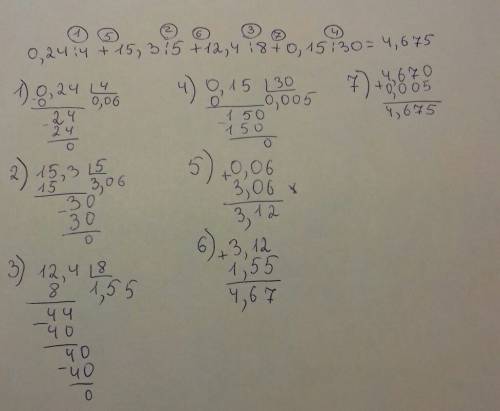 ① ⑤ ② ⑥ ③ ⑦ ④
0,24:4 + 15,3:5 + 12,4:8 + 0,15:30 = 4,675
1) 0,24 | 4
-0 0,06
-24
24
0
2) 15,3 | 5
15 3,06
-30
30
0
3) 12,4 | 8
8 1,55
-44
40
-40
40
0
4) 0,15 | 30
0 0,005
-150
150
0
5) +0,06
3,06
3,12
6) +3,12
1,55
4,67
7) +4,670
0,005
4,675